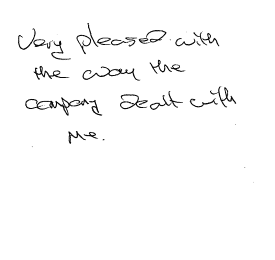 Very pleased with
the way the
company dealt with
me.